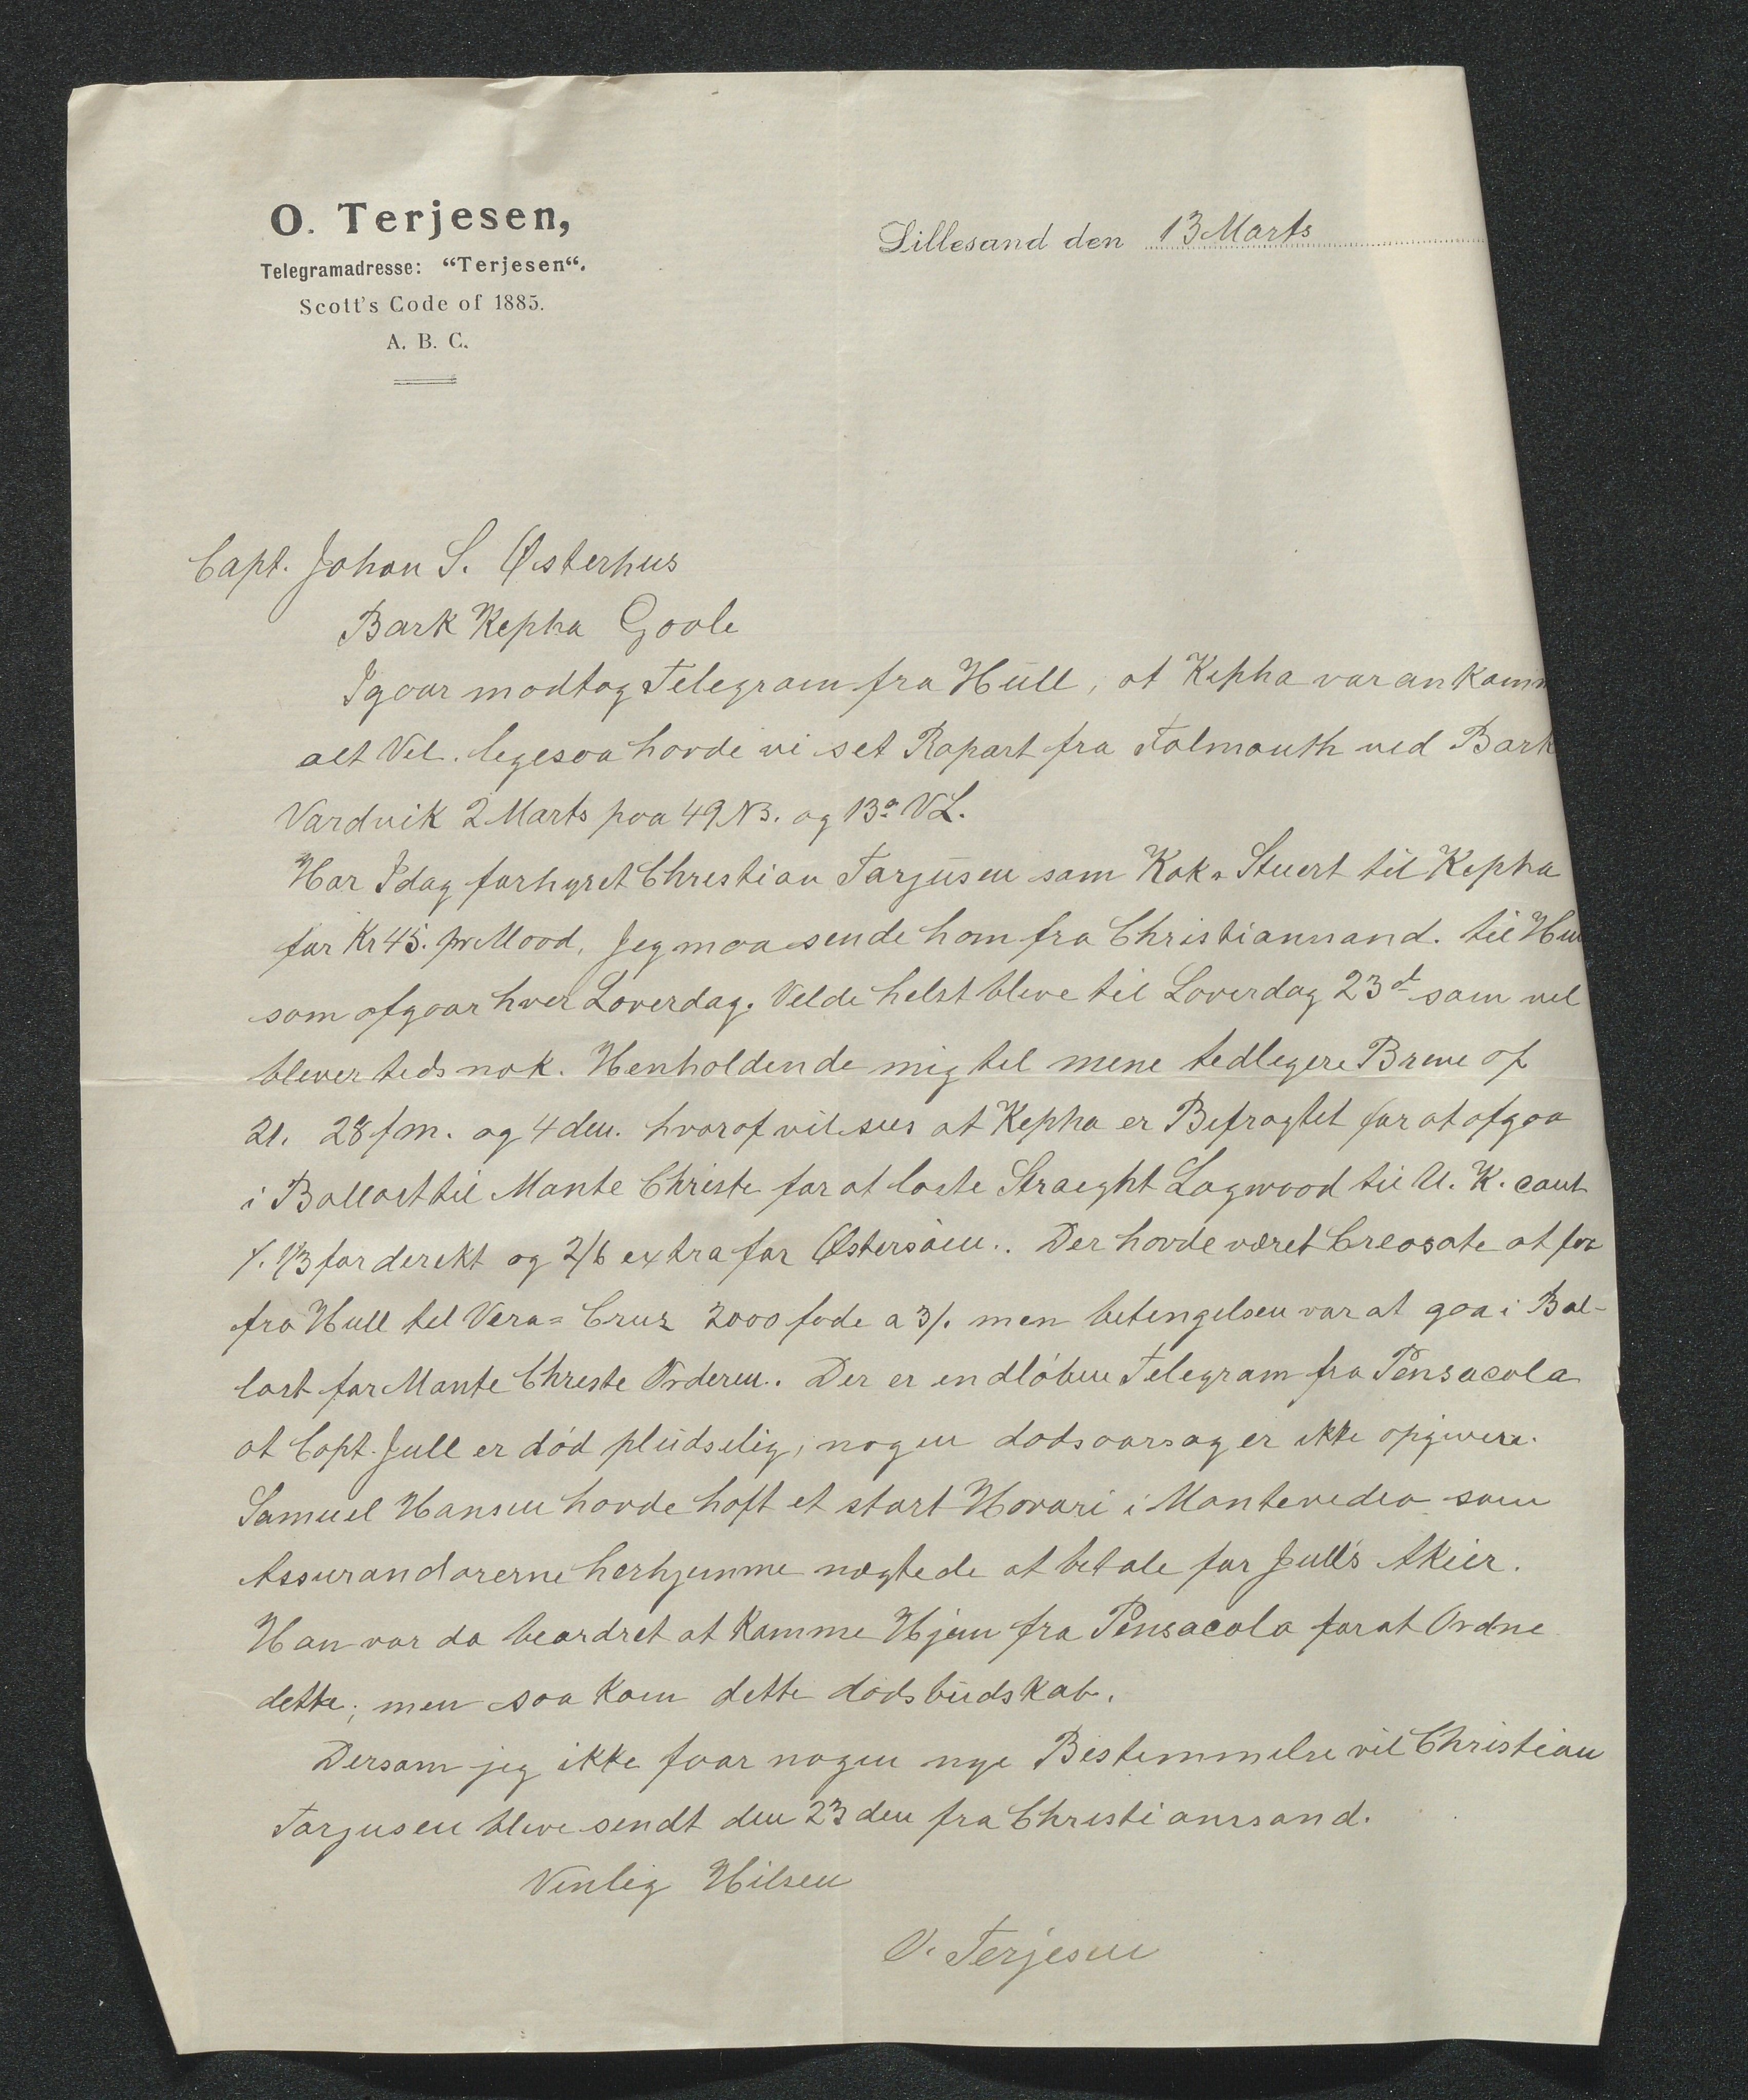 O. Terjesen,
Telegramadresse: “Terjesen“.
Scott's Code of 1885.
A. B. C.
Lillesand den 13 Marts
Capt. Johan S. Østerhus
Bark Kepha Goole
Igaar modtog Telegram fra Hull, at Kepha var ankomm
alt Vel. legesaa havde vi set Raport fra Falmouth ved Bark
Vardvik 2 Marts paa 49 NB. og 13° VL.
Har Idag forhyret Christian Tarjusen som Kok & Stuert til Kepha
for Kr 45. pr Maad, Jeg maa sende ham fra Christiannand. til Hu
som afgaar hver Loverdag. Velde helst bleve til Loverdag 23d som vel
blever teds nok. Henholdende mig til mene tedlegere Breve af
21. 28 f m. og 4 den. hvoraf vil sees at Kepha er Befragtet for at afgaa
i Ballast til Monte Christe for at laste Straeght Logwood til U. K. cont
f. 1/3 for derekt og 2/6 extra for Østersøen.. Der havde været Creosote at faa
fra Hull tel Vera= Cruz 2000 fade a 3/. men betengelsen var at gaa i Bal-
last for Monte Chreste Orderen. Der er endløben Telegram fra Pensacola
at Capt. Jull er død pludselig, nogen dodsaarsag er ikke opgivere.
Samuel Hansen havde haft et stort Havari i Montevedeo som
Assurandorerne herhjemme nægtede at betale for Jull's Akier.
Han var da beordret at komme Hjem fra Pensacola forat Ordne
dette, men saa kom dette dødsbudskab.
Dersom jeg ikke faar nogen nye Bestemmelse vil Christian
Tarjusen bleve sendt den 23 den fra Christianssand.
Venlig Hilsen
O. Terjesen